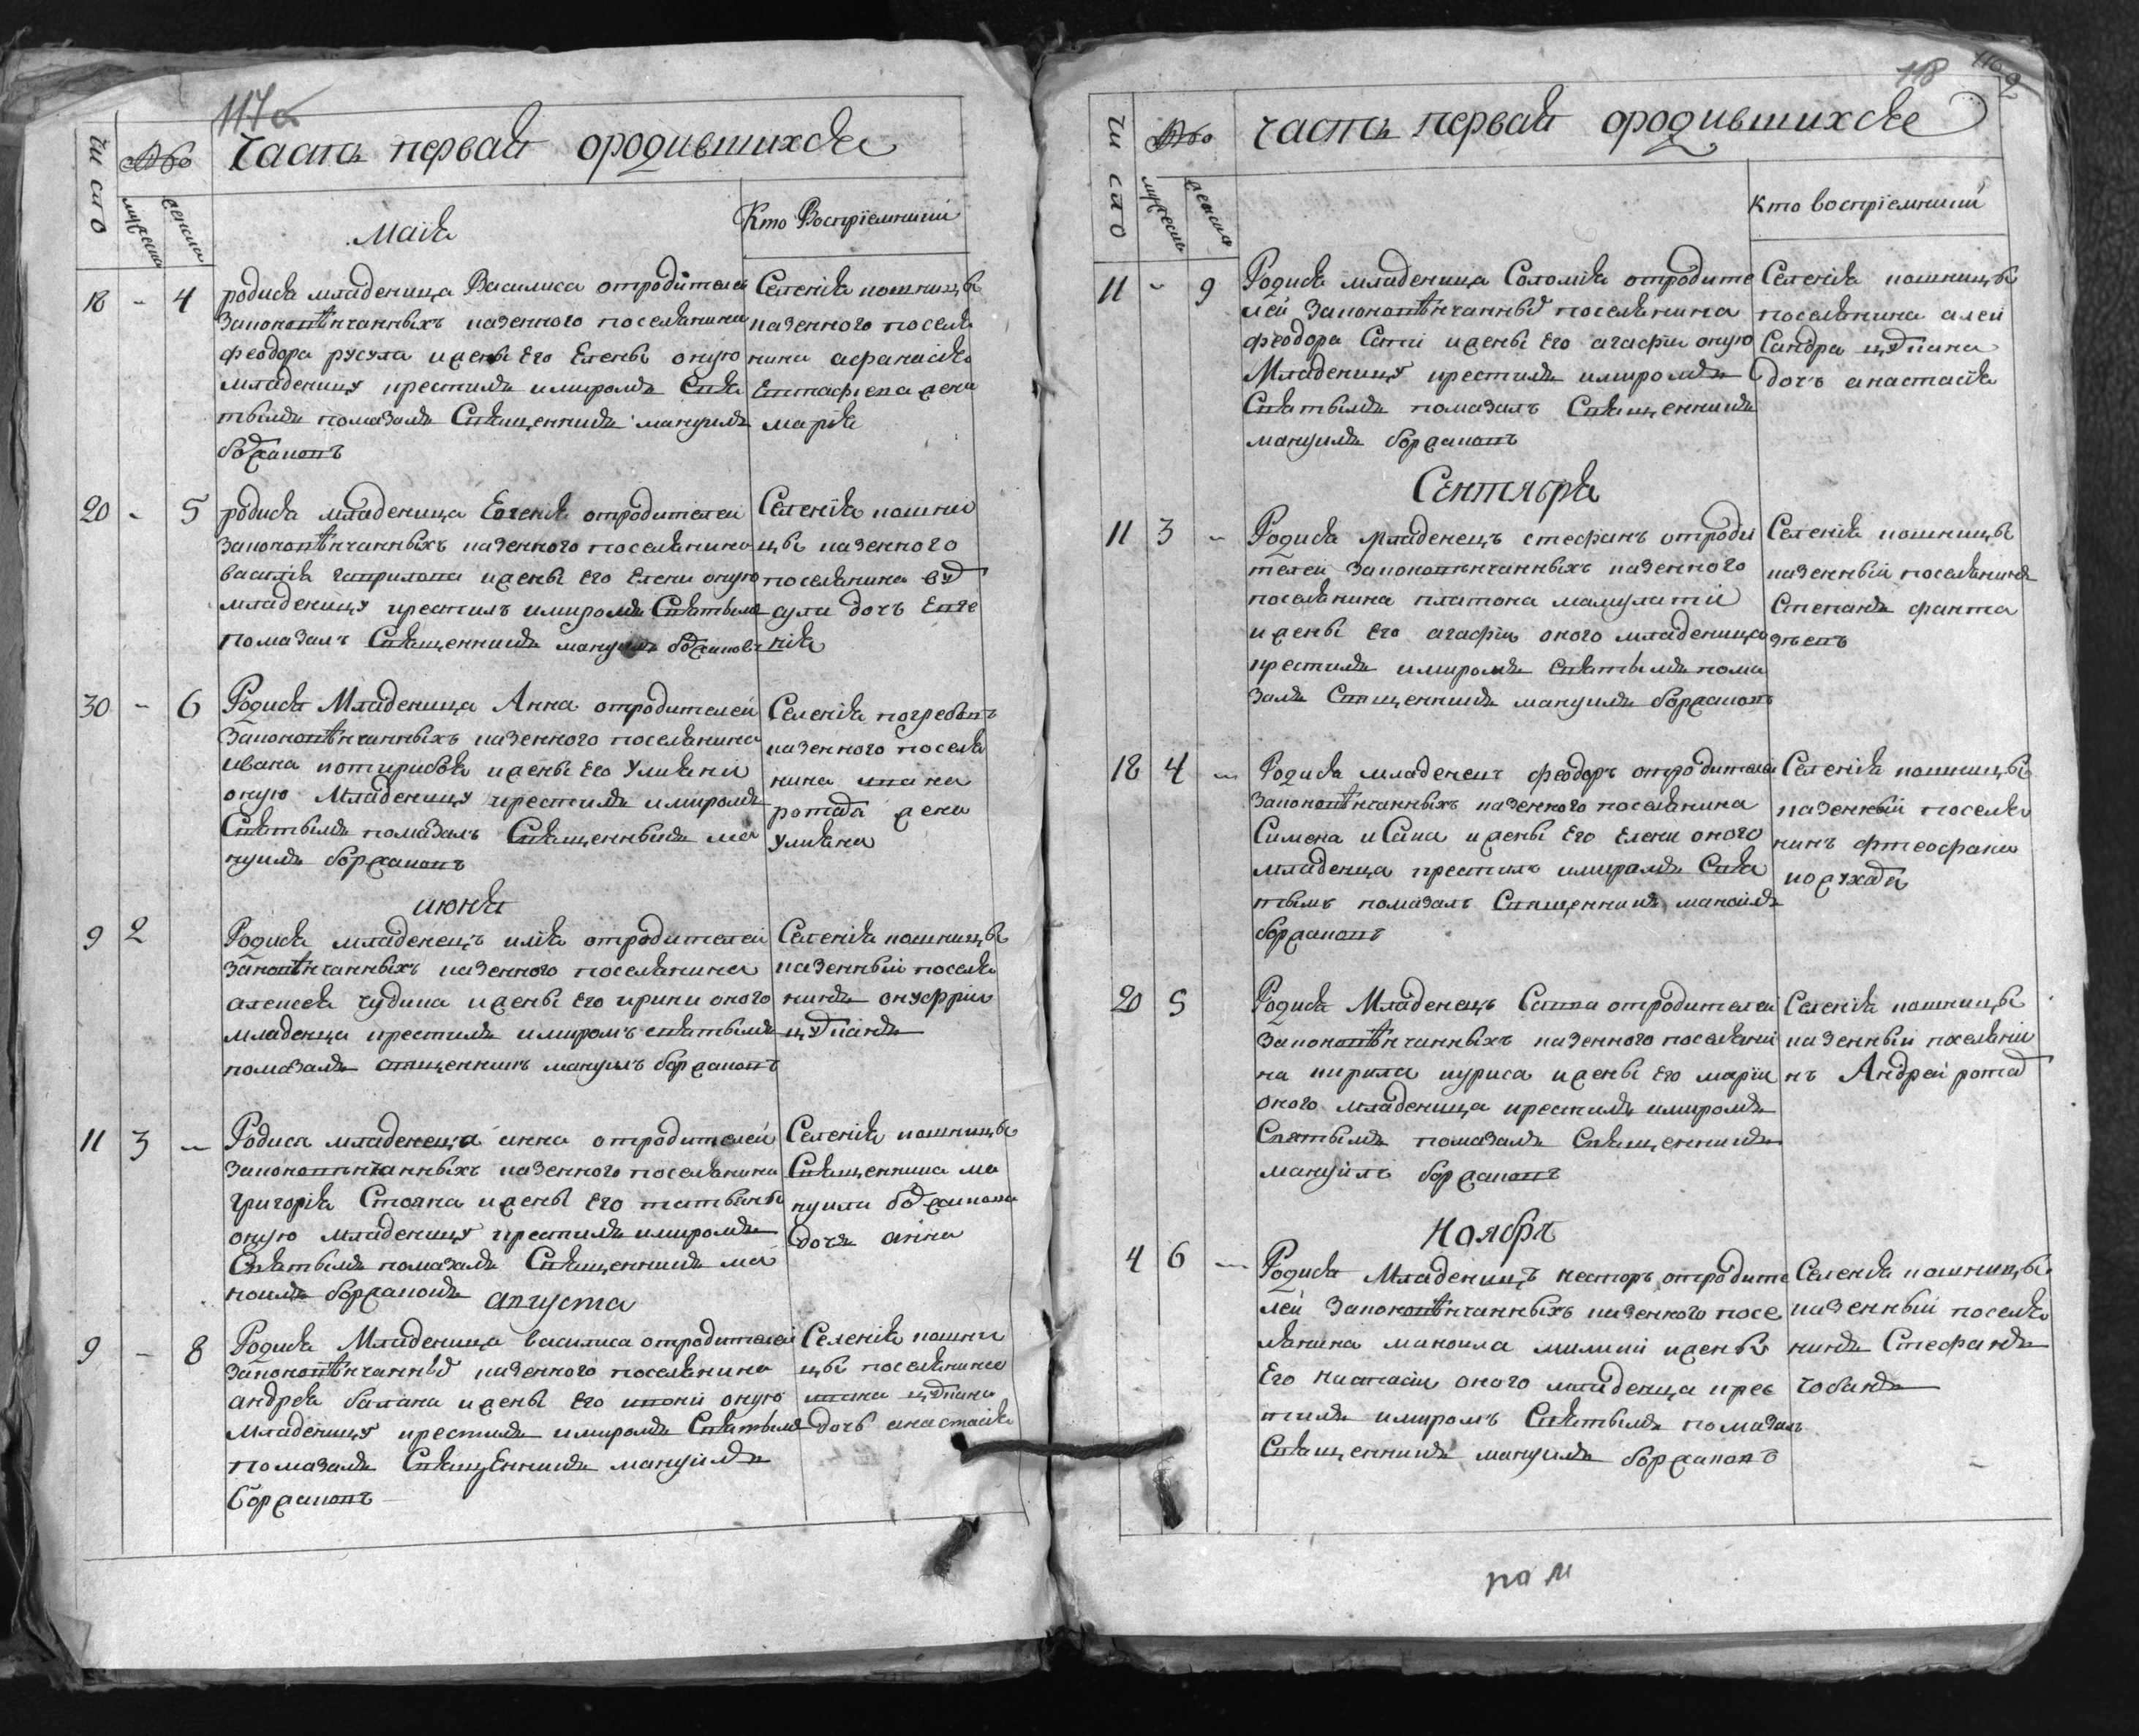 117
Часть первая ородившихся
число
№
мужеска
женска
Кто Восприемники
Маия
18 - 4
родися младеница Василиса отродителей
законовѣнчанныхъ казенного поселянина
феодора русула ижены Его Елены оную
младеницу крестилъ имиромъ Свя
тымъ помазалъ Священникъ мануилъ
боржаковъ
Селенія кошницы
казенного поселя
нина афанасія
Евтафієва жена
марія
20 - 5
родися младеница Евгенія отродителей
законовѣнчанныхъ казенного поселянина
василія гаврилова ижены Его Елени оную
младеницу крестилъ имиромъ Святымъ
помазалъ Священникъ мануилъ боржаковъ
Селенія кошни
цы казенного
поселянина
дочъ Евге
нія
30 - 6
Родися Младеница Анна отродителей
Законовѣнчанныхъ казенного поселянина
ивана ижены Его Улияни
оную Младеницу крестилъ имиромъ
Святымъ помазалъ Священникъ ма
нуилъ боржаковъ
Селенія погребовъ
казенного поселя
нина ивана
ротаръ жена
Улияна
июня
9 2
Родися младенецъ илія отродителей
законовѣнчанныхъ казенного поселянина
алексея чудина ижены Его ирини оного
младенца крестилъ имиромъ святымъ
помазалъ священникъ мануилъ боржаковъ
Селенія кошницы
казенный поселя
нинъ онуфрій
цуркань
11 3 -
Родися младенеца анна отродителей
законовѣнчанныхъ казенного поселянина
григорія Стояна ижены Его татьяны
оную младеницу крестилъ имиромъ
Святымъ помазалъ Священникъ ма
ноилъ боржаковъ
Селенія кошницы
Священника ма
нуила боржакова
дочъ анна
августа
9 - 8
Родися Младеница василиса отродителей
законовѣнчанных казенного поселянина
андрея балана ижены Его оную
младеницу крестилъ имиромъ Святымъ
помазалъ СвящЕнникъ мануилъ
боржаковъ
Селенія кошни
цы поселянина
ивана цуркана
дочь анастасія
118
Часть первая ородившихся
число
№
мужескъ
женска
кто восприемники
11 - 9
Родися младеница Соломія отродите
лей законовѣнчанных поселянина
феодора Сави ижены Его агафіи оную
Младеницу крестилъ имиромъ
Святымъ помазалъ Священникъ
мануилъ боржаковъ
Селенія кошницы
поселянина алек
сандра цуркана
дочъ анастасія
Сентября
11 3 -
Родися младенецъ стефанъ отроди
телей законовѣнчанныхъ казенного
поселянина платона
ижены Его агафіи оного младеница
крестилъ имиромъ святымъ пома
залъ Священникъ мануилъ боржаковъ
Селенія кошницы
казенный поселянинъ
Степанъ
18 4 -
Родися младенецъ феодоръ отродителей
законовѣнчанныхъ казенного поселянина
Симена ижены Его Елени оного
младенца крестилъ имиромъ Свя
тымъ помазалъ Священникъ маноилъ
боржаковъ
Селенія кошницы
казенный поселя
нинъ
кожухаръ
20 5
Родися Младенецъ Сава отродителей
законовѣнчанныхъ казенного поселяни
на кирила ижены Его маріи
оного младеница крестилъ имиромъ
Святымъ помазалъ Священникъ
мануилъ боржаковъ
Селенія кошницы
казенный поселяни
нъ Андрей ротар
Ноября
4 6 -
Родися Младеницъ несторъ отродите
лей законовѣнчанныхъ казенного посе
лянина маноила ижены
Его настасіи оного младенца крес
тилъ имиромъ Святымъ помазалъ
Священникъ мануилъ боржаковъ
Селенія кошницы
казенный поселя
нинъ Стефанъ
чобанъ